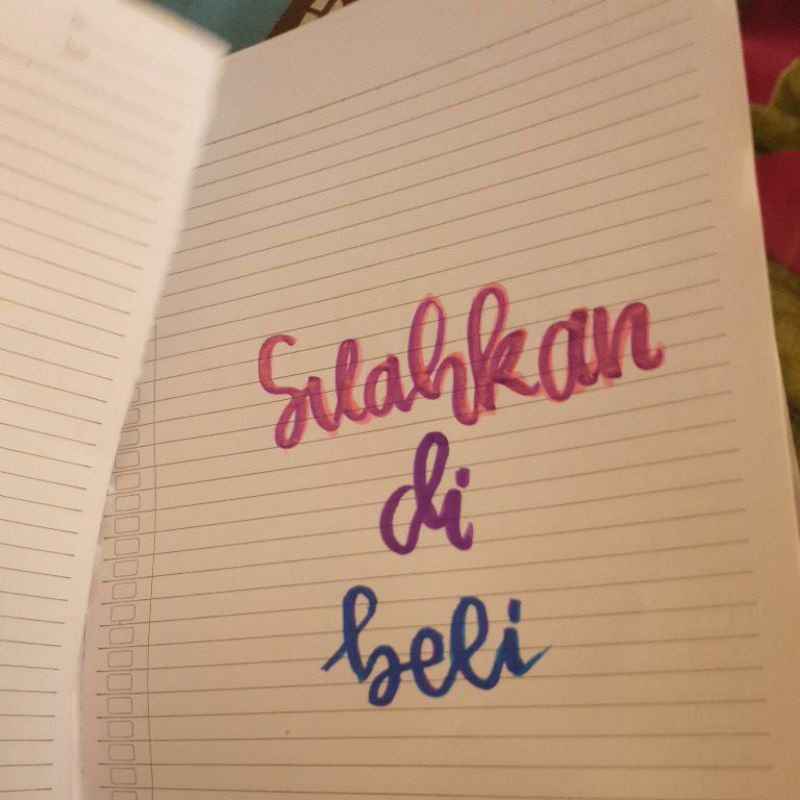 Silahkan
di
beli